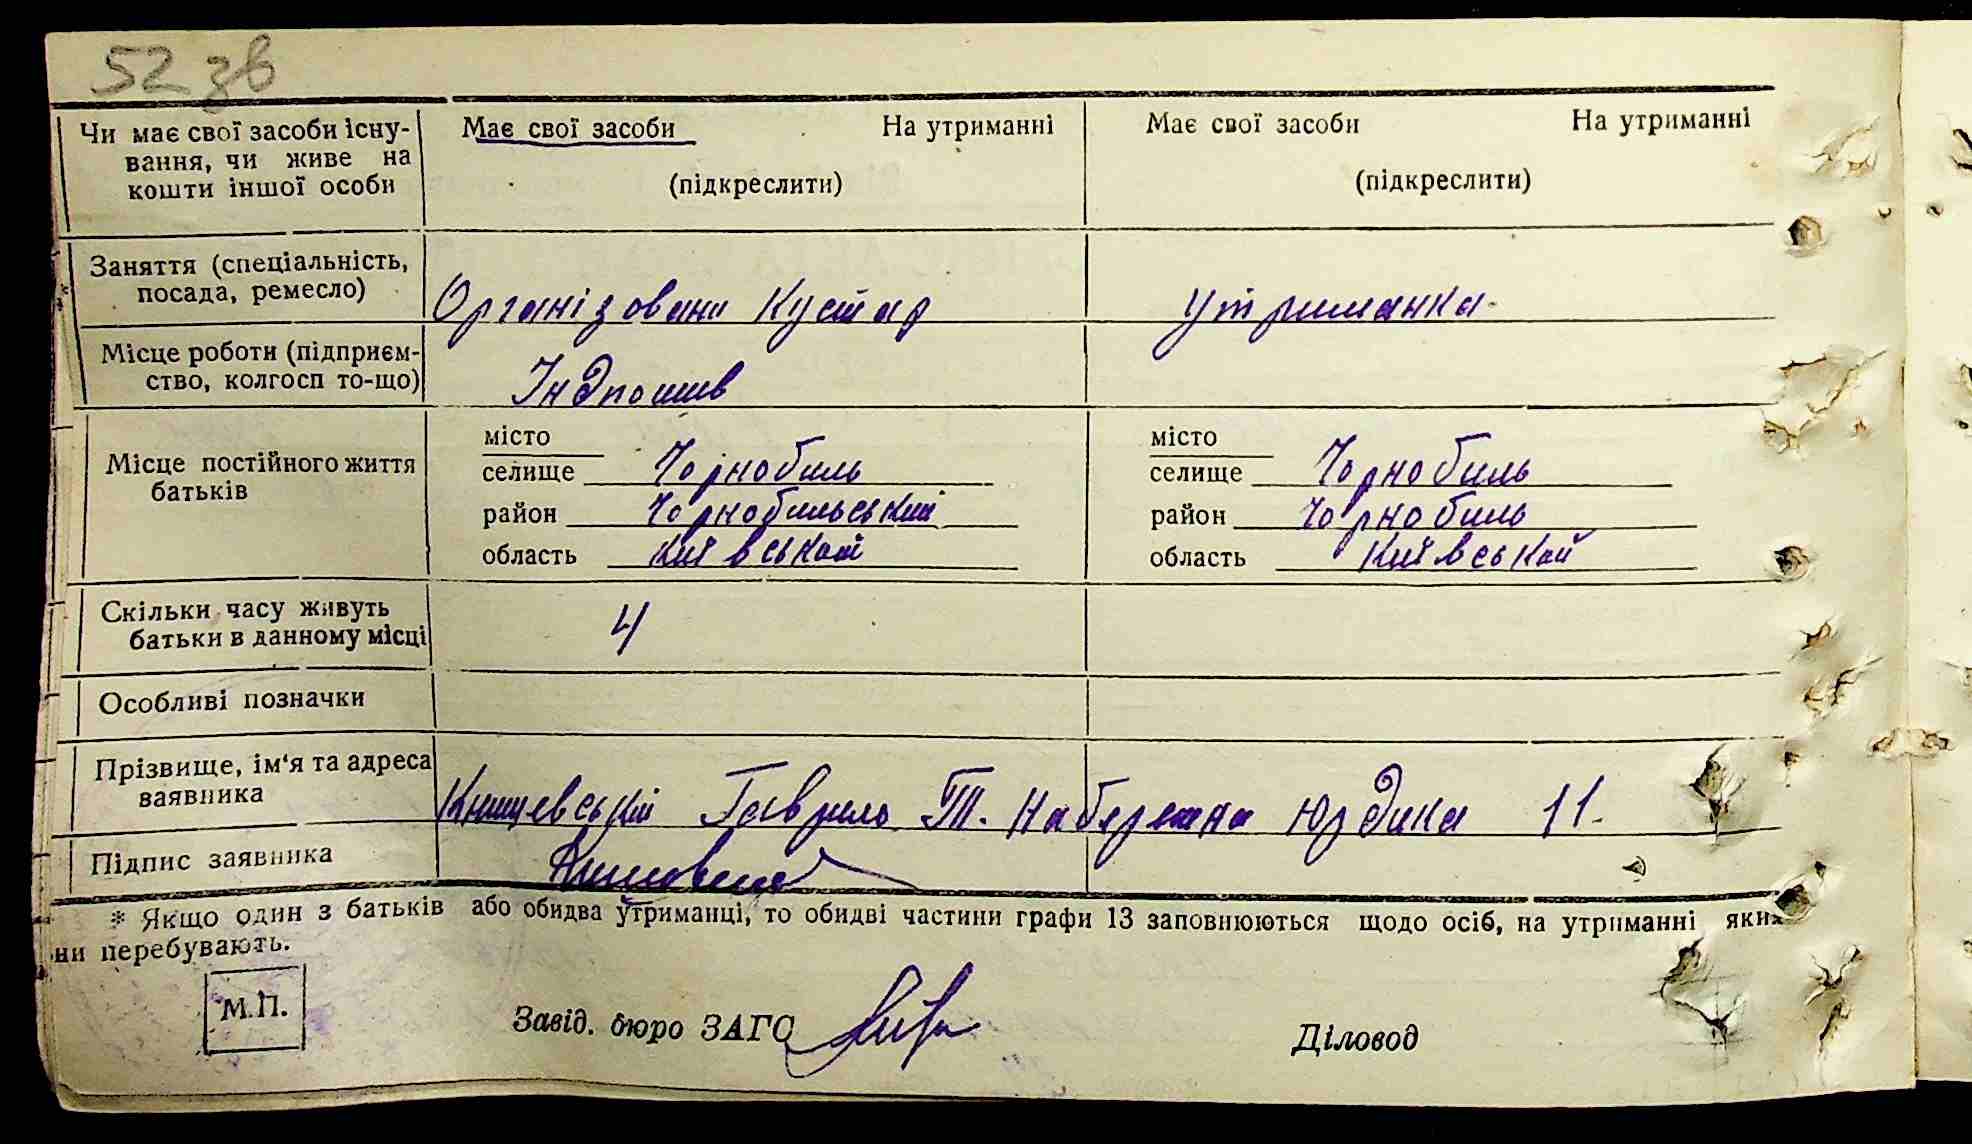 52 зв
Чи має свої засоби існування, чи живе на кошти іншої особи
Має свої засоби На утриманні
(підкреслити)
Має свої засоби На утриманні
(підкреслити)
Заняття (спеціальність, посада, ремесло)
Організовани Кустар
утриманка
Місце роботи (підприємство, колгосп то-що)
Індпошив
Місце постійного життя батьків
місто
селище Чорнобиль
район Чорнобильський
область Київській
місто
селище Чорнобиль
район Чорнобиль
область Київській
Скільки часу живуть батьки в данному місці
4
Особливі позначки
Прізвище, ім'я та адреса заявника
Гаврило Т. Набережна Юрдика 11
Підпис заявника
* Якщо один з батьків або обидва утриманці, то обидві частини графи 13 заповнюються щодо осіб, на утриманні яких
ни перебувають.
М.П.
Завід. бюро ЗАГС
Діловод